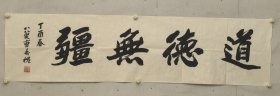 道德無疆
丁酉春